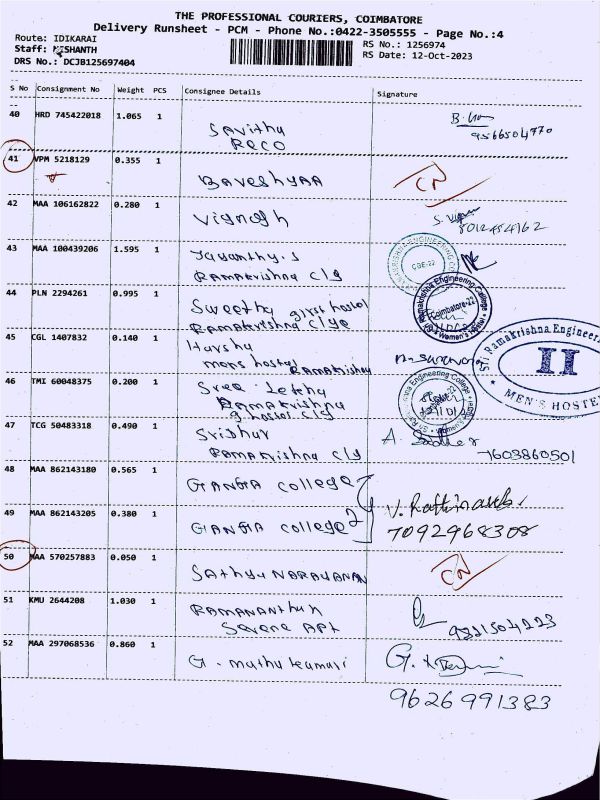 THE PROFESSIONAL COURIERS, COIMBATORE
Delivery Runsheet - PCM - Phone No.:0422-3505555 - Page No.:4
Route: IDIKARAI
RS No.: 1256974
Staff: NISHANTH
RS Date: 12-Oct-2023
DRS No.: DCJB125697404
S No Consignment No Weight PCS Consignee Details Signature
40 HRD 745422018 1.065 1
Savitha
RECO
9566504770
41 VPM 5218129 0.355 1
BaveshyAA
CN
42 MAA 106162822 0.280 1
Vignesh
8012454162
43 MAA 100439206 1.595 1
Jayanthy.S
Ramakrishna clg
CBE-22
44 PLN 2294261 0.995 1
Swetha girst hostel
Ramakrishna clge
Ramakrishna Engineering College
Coimbatore-22
Women's Hostel
45 CGL 1407832 0.140 1
Harshy
mens hostel Ramakrishna
Sri Ramakrishna Engineering
II
MEN'S HOSTEL
46 TMI 60048375 0.200 1
Sree Lekha
Ramakrishna
g hostel clg
47 TCG 50483318 0.490 1
Sridhar
Ramakrishna clg
7603860501
48 MAA 862143180 0.565 1
GANGA college
49 MAA 862143205 0.380 1
GANGA college 2
7092968308
50 MAA 570257883 0.050 1
SAthyuNARAYANAN
CN
51 KMU 2644208 1.030 1
RAMANANthan
Severe APt
52 MAA 297068536 0.860 1
G. muthu kumari
9626991383